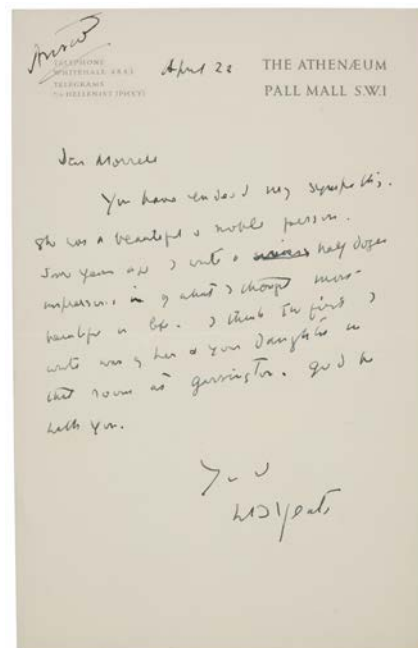 Answd
TELEPHONE
WHITEHALL
TELEGRAMS
HELLENIST (PHYX)
April 22
THE ATHENÆUM
PALL MALL S.W.1
Dear Morrell
You have indeed my sympathy.
She was a beautiful & noble person.
Some years ago I wrote a half dozen
impressions of what I thought most
beautiful in life. I think the first I
wrote was of her & your daughter in
that room at Garsington. God be
with you.
Yrs
WB Yeats